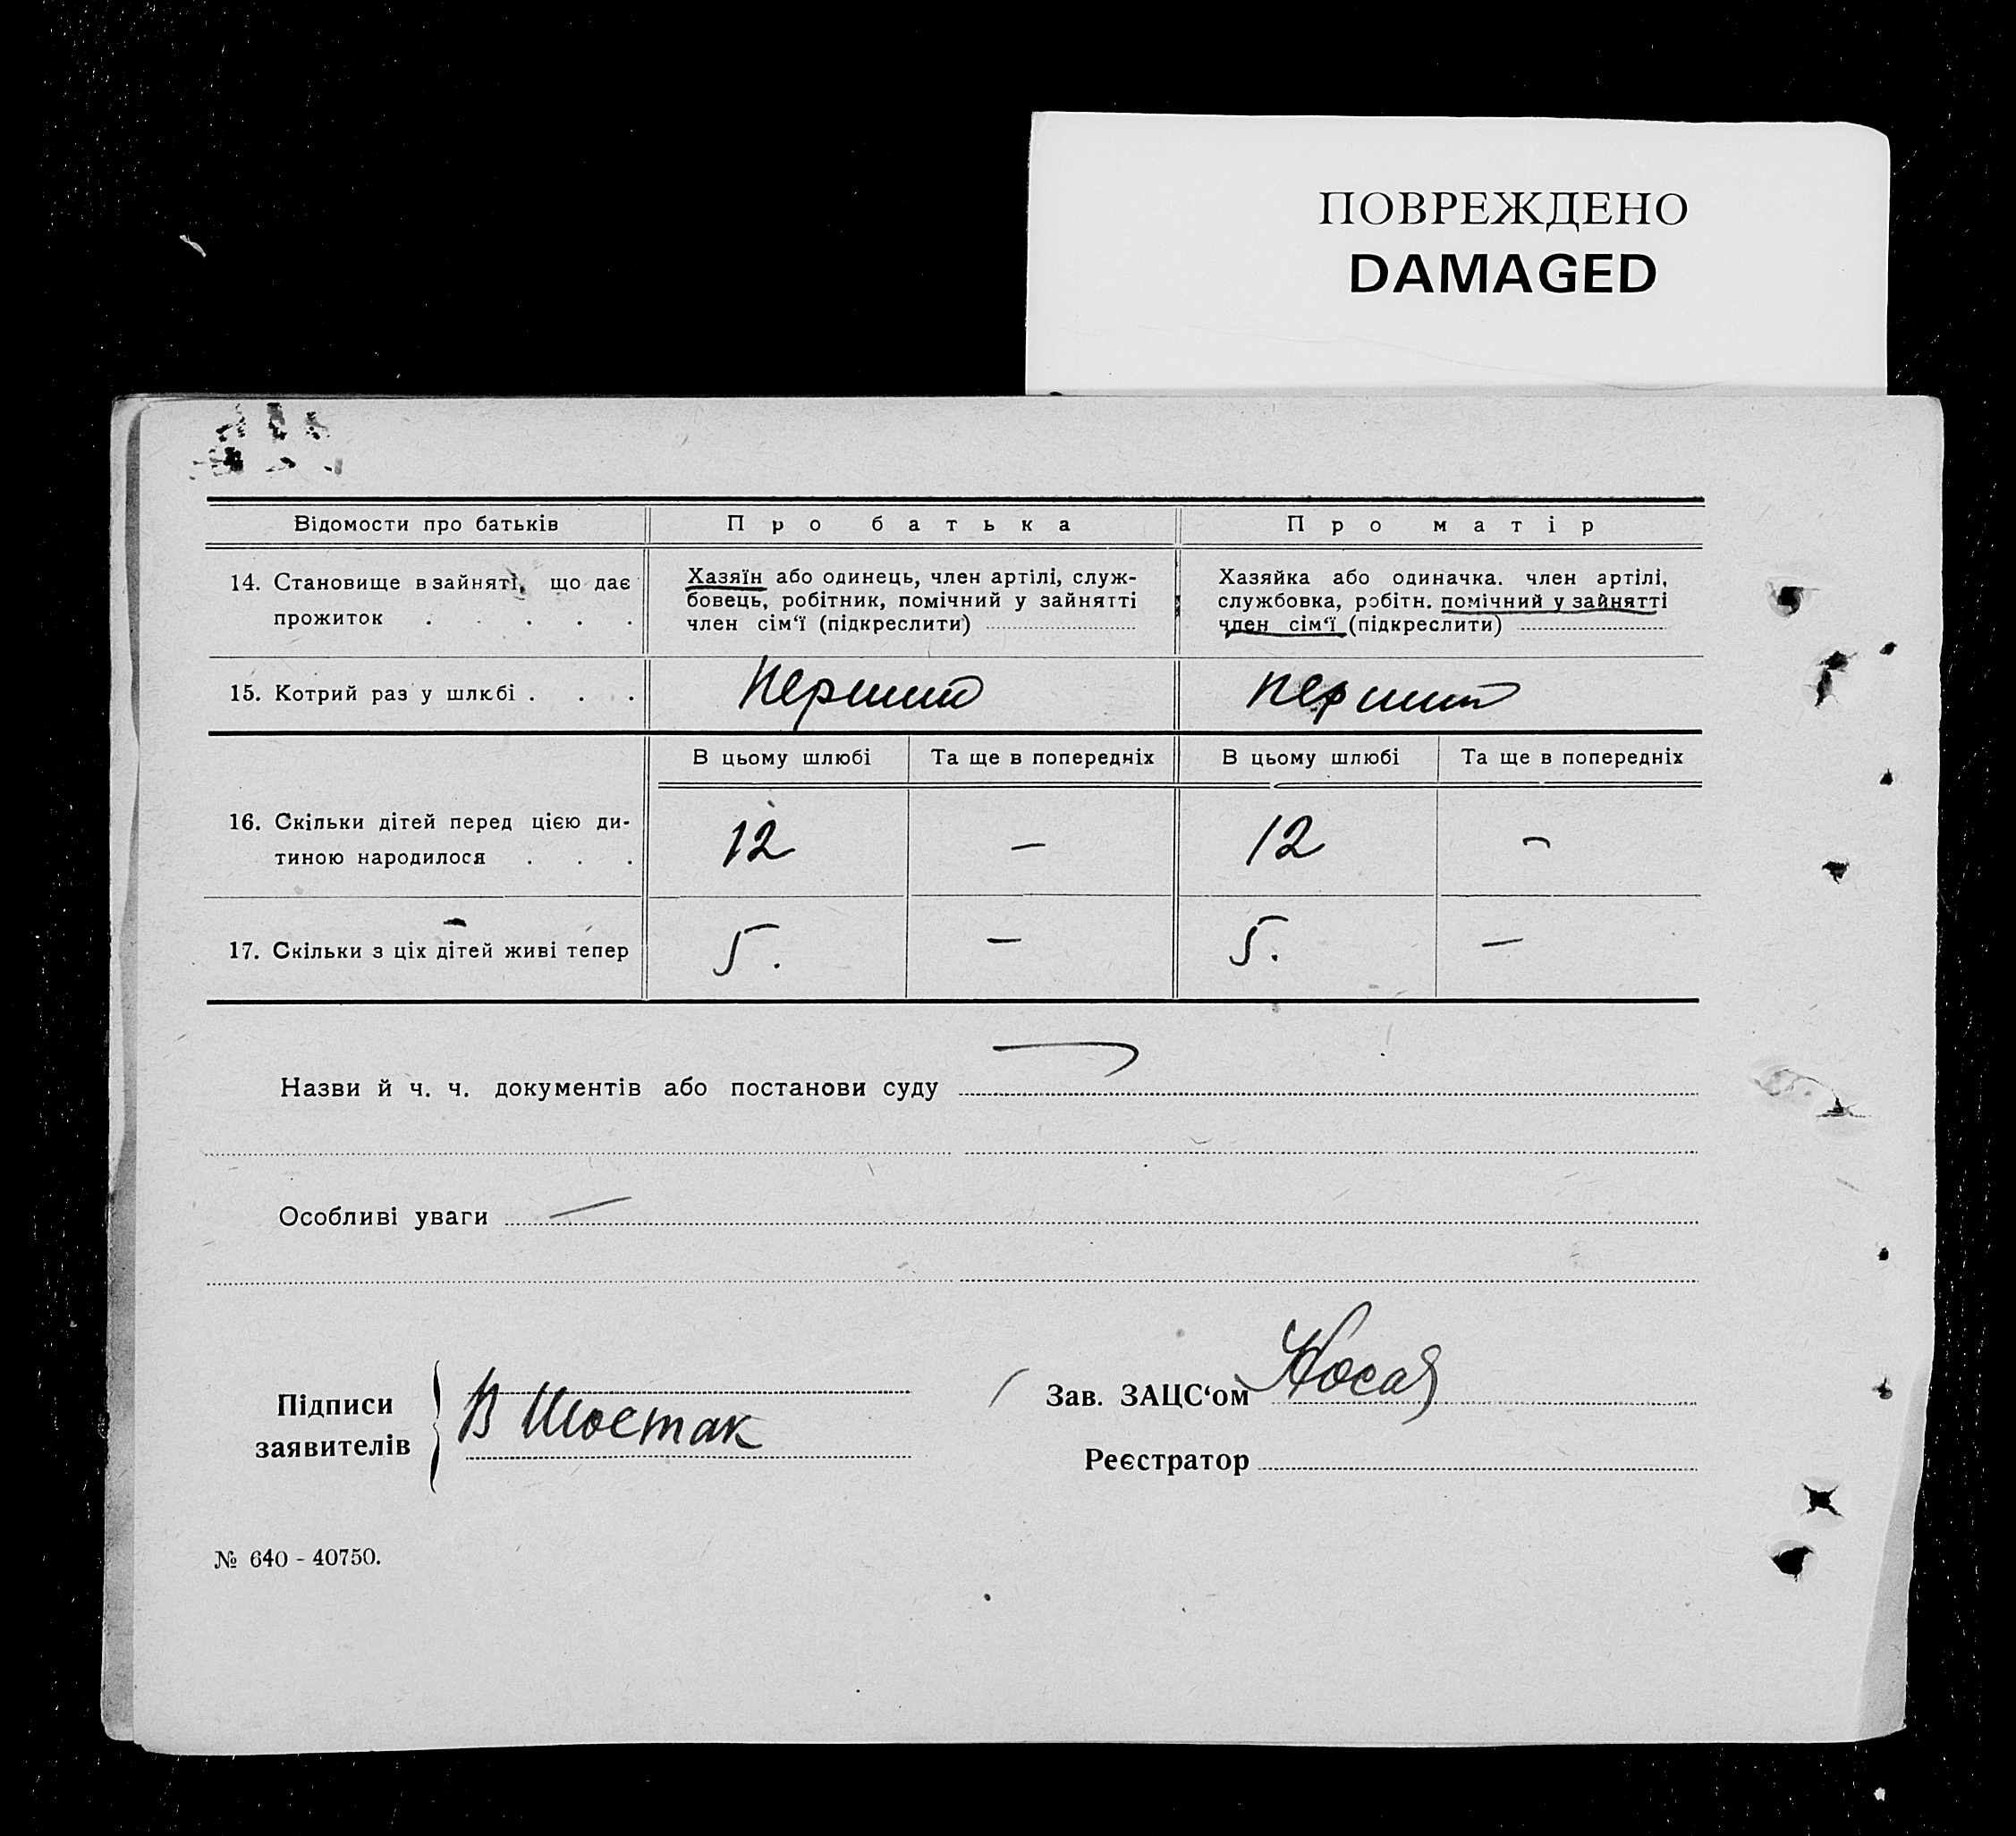 ПОВРЕЖДЕНО
DAMAGED
Відомости про батьків
Про батька
Про матір
14. Становище в зайняті, що дає
прожиток . . . . .
Хазяїн або одинець, член артілі, служ-
бовець, робітник, помічний у зайнятті
член сім‘ї (підкреслити)
Хазяйка або одиначка. член артілі,
службовка, робітн. помічний у зайнятті
член сім‘ї (підкреслити)
15. Котрий раз у шлюбі . . .
перший
перший
В цьому шлюбі
Та ще в попередніх
В цьому шлюбі
Та ще в попередніх
16. Скільки дітей перед цією ди-
тиною народилося . . .
12
—
12
—
17. Скільки з ціх дітей живі тепер
5.
—
5.
—
Назви й ч. ч. документів або постанови суду —
Особливі уваги —
Підписи
заявителів
В Шостак
Зав. ЗАЦС‘ом
Реєстратор
№ 640 - 40750.